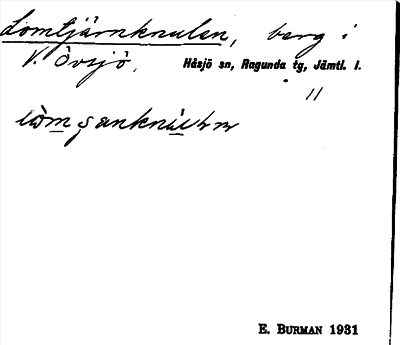 Lomtjärnknulen, berg i
V. Övsjö. Håsjö sn, Ragunda tg, Jämtl. l.
11
E. BURMAN 1931